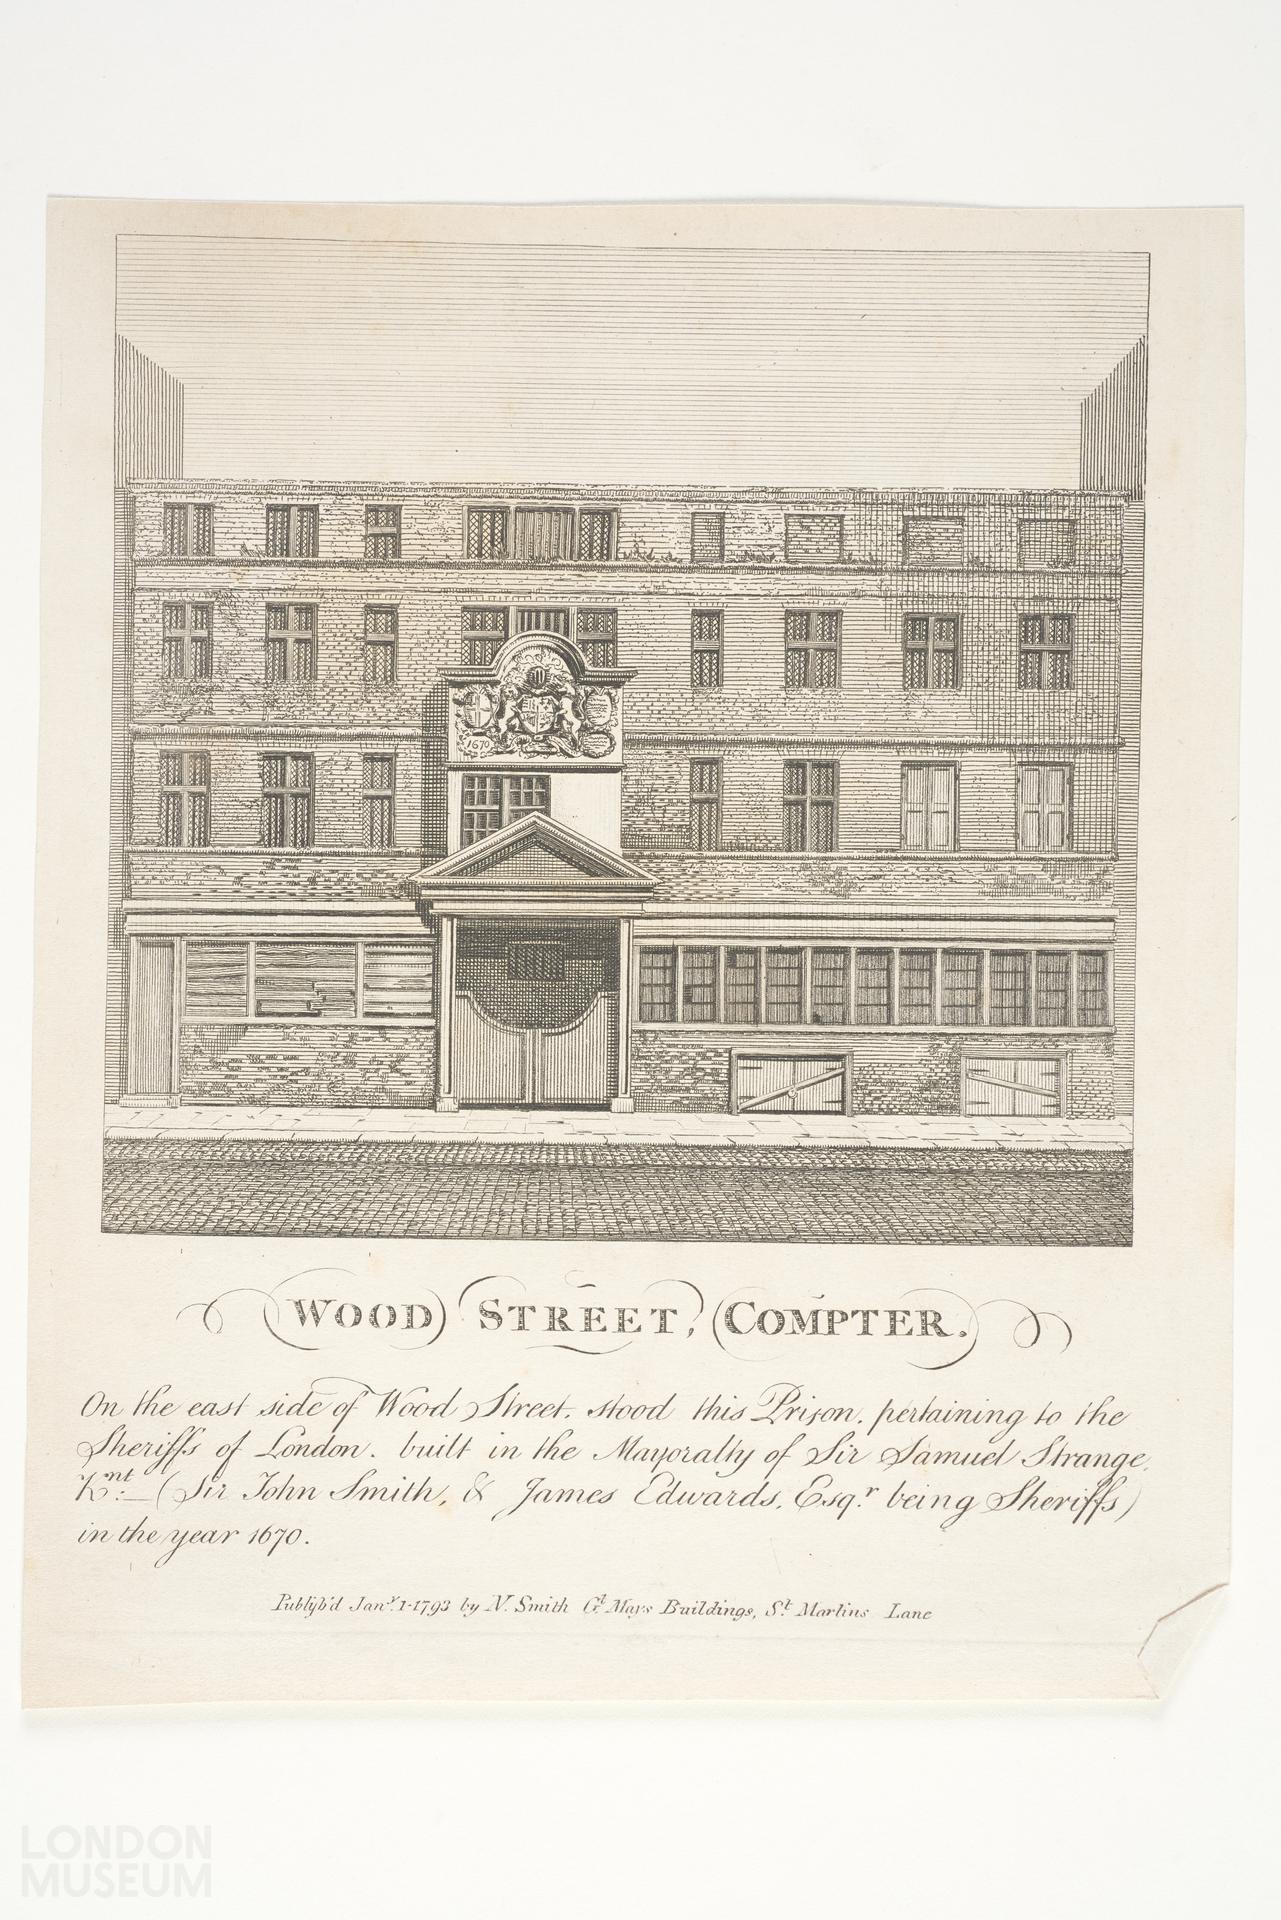 1670
WOOD STREET, COMPTER.
On the east side of Wood Street. stood this Prison. pertaining to the
Sheriffs of London. built in the Mayoralty of Sir Samuel Strange.
Knt:— (Sir John Smith, & James Edwards, Esqr. being Sheriffs)
in the year 1670.
Publish'd Jany. 1-1793 by N. Smith Gt. Mays Buildings, St. Martins Lane
LONDON
MUSEUM